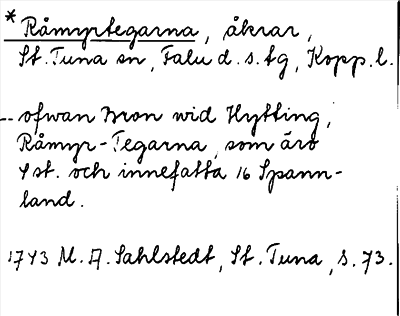 * Råmyrtegarna, åkrar,
St. Tuna sn, Falu d. s. tg, Kopp. l.
-- ofwan Bron wid Hytting,
Råmyr-Tegarna, som äro
4 st. och innefatta 16 Spann-
land.
1743 M. A. Sahlstedt, St. Tuna, s. 73.